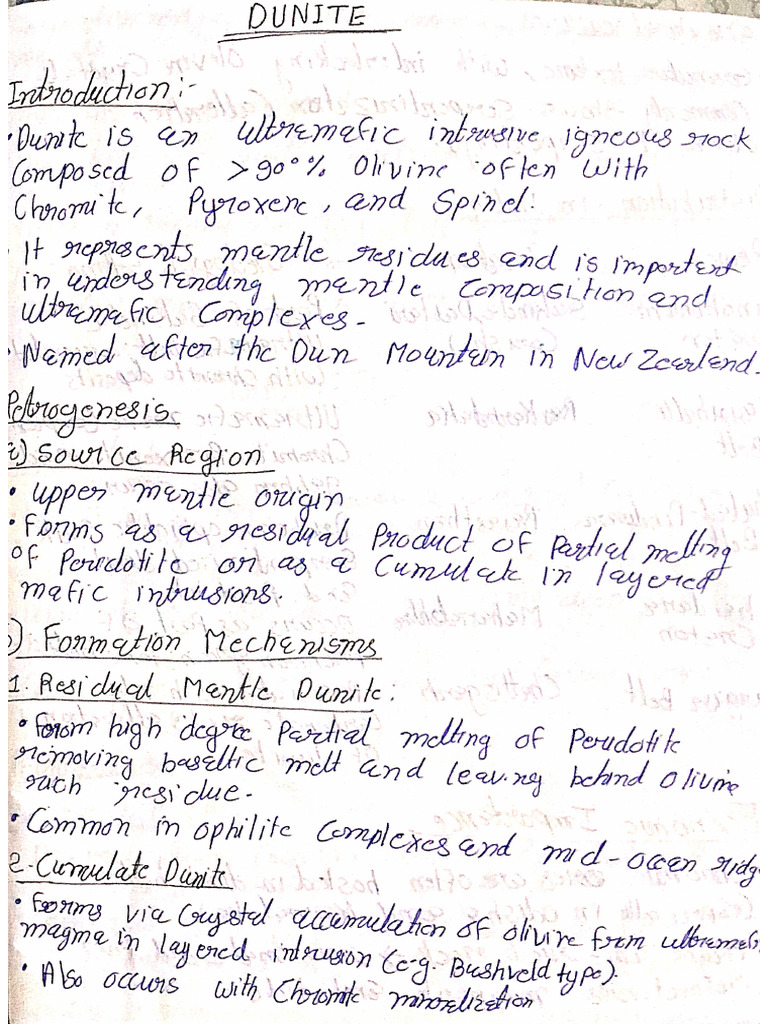 DUNITE
Introduction:-
• Dunite is an ultramafic intrusive igneous rock
Composed of >90% Olivine often with
Chromite, Pyroxene, and Spinel.
• It represnts mantle residues and is important
in understanding mantle Composition and
ultramafic Complexes.
• Named after the Dun Mountain in New Zealand.
Petrogenesis
a) Source Region
• upper mantle origin
• Forms as a residual Product of Partial melting
of Peridotite or as a Cumulate in layered
mafic intrusions.
b) Formation Mechanisms
1. Residual Mantle Dunite:
• From high degree Partial melting of Peridotite
removing basaltic melt and leaving behind olivine
rich residue.
• Common in ophilite Complexes and mid-ocean ridg
2. Cumulate Dunite
• Forms via Crystal accumulation of olivine from ultramafi
magma in layered intrusion (e.g. Bushveld type).
• Also occurs with Chromite minerelization